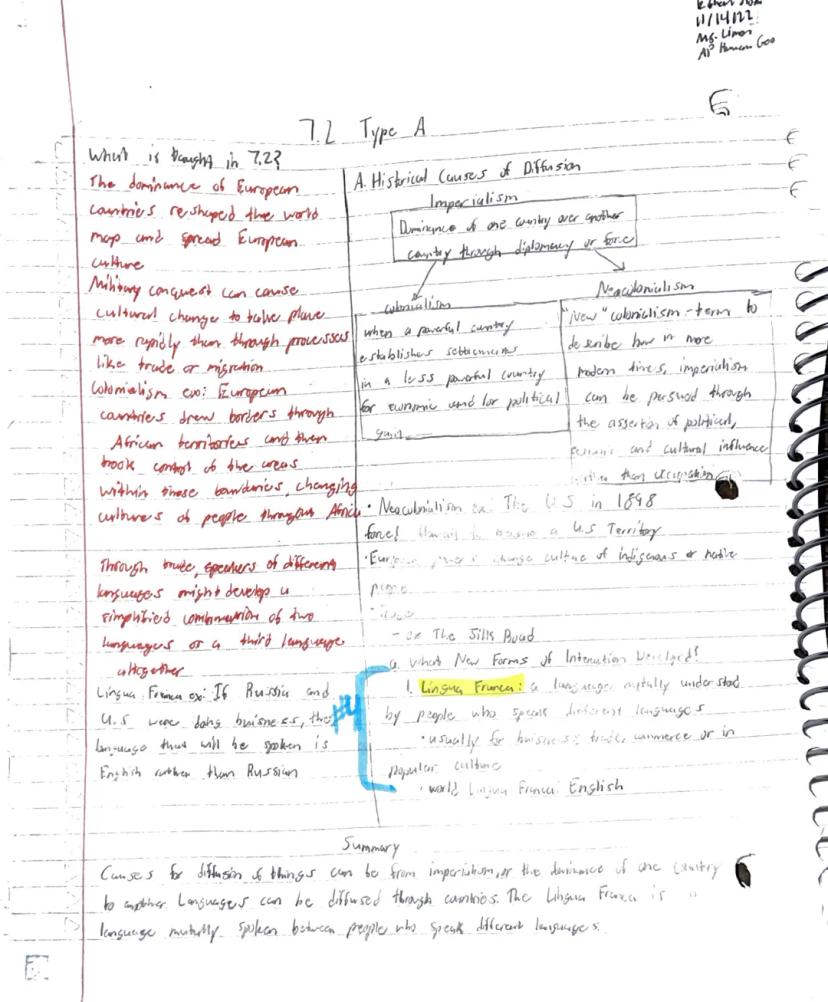 11/14/22
Ms. Limon
AP Human Geo
7.2 Type A
What is taught in 7.2?
The dominance of European
countries reshaped the world
map and spread European
culture
Military conquest can cause
cultural change to take place
more rapidly than through processes
like trade or migration
Colonialism ex: European
countries drew borders through
African territories and then
took control of the areas
within those boundaries, changing
cultures of people throughout Africa
Through trade, speakers of differing
languages might develop a
simplified combination of two
languages or a third language
altogether
Lingua Franca ex: If Russia and
U.S were doing buisness, the
language that will be spoken is
English rather than Russian
A. Historical Causes of Diffusion
Imperialism
Dominance of one country over another
country through diplomacy or force
Colonialism
when a powerful country
establishes settlements
in a less powerful country
for economic and/or political
gain
Neocolonialism
"New" colonialism - term to
describe how in more
modern times, imperialism
can be persued through
the assertion of political,
economic and cultural influence
rather than occupation
• Neocolonialism ex: The U.S in 1898
forced Hawaii to become a U.S Territory
• European powers change culture of indigenous or native
people
- ex The Silk Road
a. What New Forms of Interaction Developed?
#4
1. Lingua Franca: a language mutally understood
by people who speak different languages
• usually for buisness, trade, commerce or in
popular culture
• world Lingua Franca: English
Summary
Causes for diffusion of things can be from imperialism, or the dominance of one country
to another Languages can be diffused through countries. The Lingua Franca is
language mutually spoken between people who speak different languages.